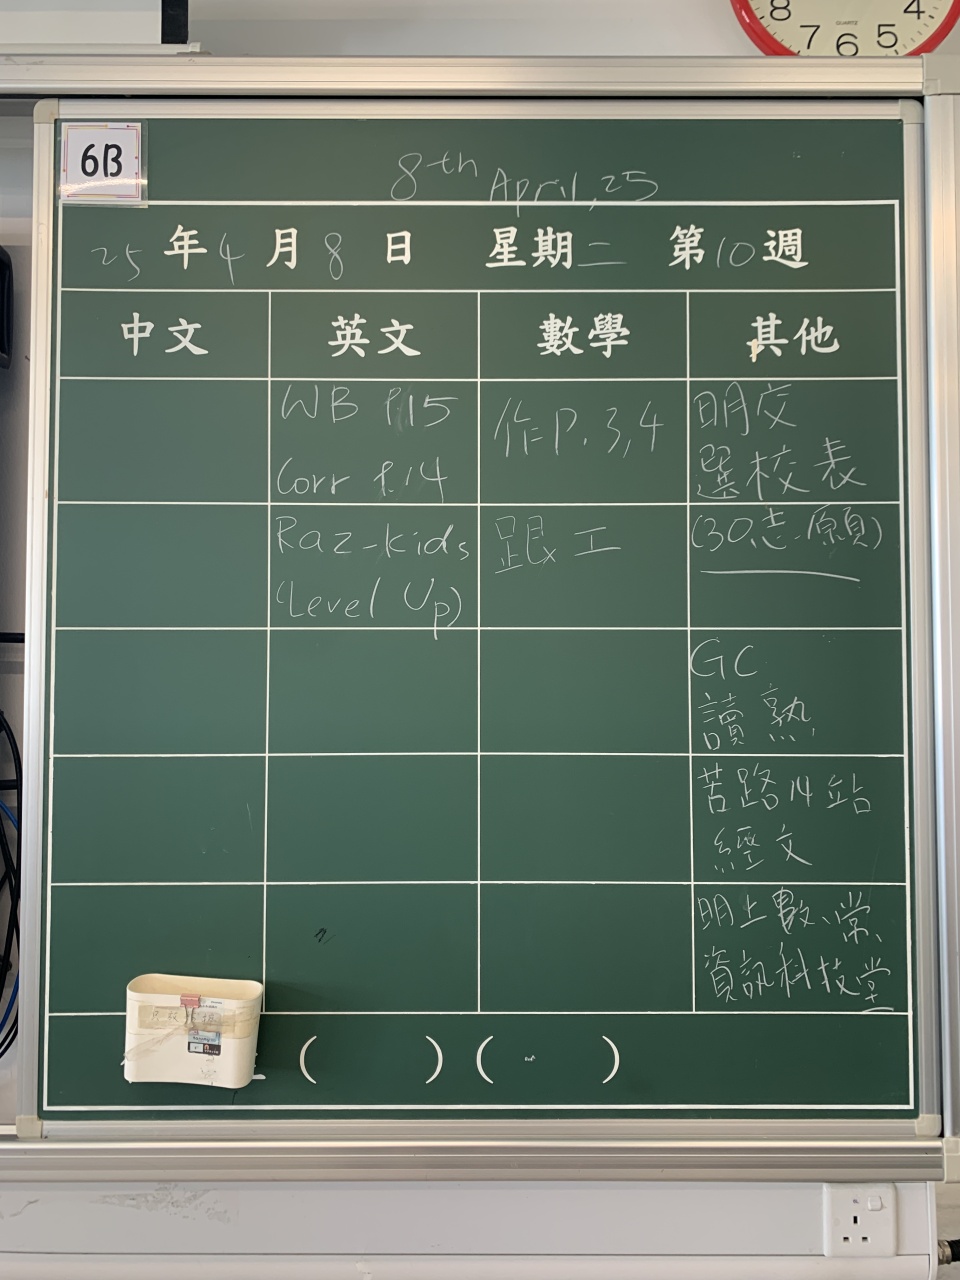 8 4
7 6 5
QUARTZ
6B
8th April, 25
25年4月8日 星期二 第10週
中文 英文 數學 其他
WB P.15
Corr P.14
作P.3,4
明交
選校表
Raz-kids
(Level Up)
跟工
(30志願)
GC
讀熟
苦路14站
經文
明上數、常、
資訊科技堂
( ) ( )